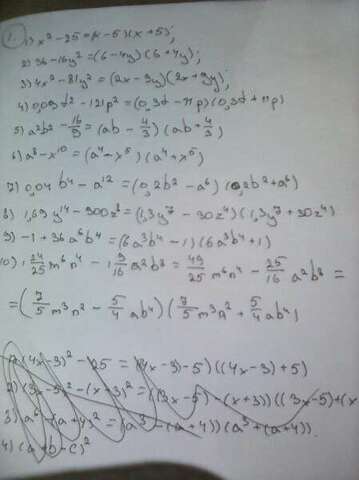 1.
1) x² - 25 = (x - 5)(x + 5);
2) 36 - 16y² = (6 - 4y)(6 + 4y);
3) 4x² - 81y² = (2x - 9y)(2x + 9y);
4) 0,09t² - 121p² = (0,3t - 11p)(0,3t + 11p)
5) a²b² - 16/9 = (ab - 4/3)(ab + 4/3)
6) a⁸ - x¹⁰ = (a⁴ - x⁵)(a⁴ + x⁵)
7) 0,04b⁴ - a¹² = (0,2b² - a⁶)(0,2b² + a⁶)
8) 1,69y¹⁴ - 900z⁸ = (1,3y⁷ - 30z⁴)(1,3y⁷ + 30z⁴)
9) -1 + 36a⁶b⁴ = (6a³b⁴ - 1)(6a³b⁴ + 1)
10) 1 24/25 m⁶n⁴ - 1 9/16 a²b⁸ = 49/25 m⁶n⁴ - 25/16 a²b⁸ =
= (7/5 m³n² - 5/4 ab⁴)(7/5 m³n² + 5/4 ab⁴)
1) (4x - 3)² - 25 = (4x - 3) - 5)((4x - 3) + 5)
2) (3x - 5)² - (x + 3)² = ((3x - 5) - (x + 3))((3x - 5) + (x
3) a⁶ - (a + 4)² = (a³ - (a + 4))(a³ + (a + 4)).
4) (a + b - c)²